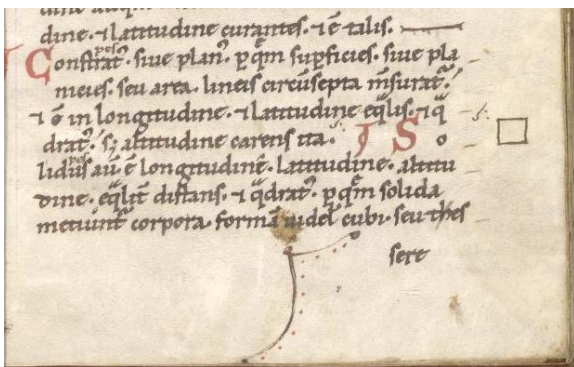 dine. ⁊ latitudine curantes. ⁊ ē talis.
Constrat᷒ pes siue plan᷒. ꝑ qͣm suꝑficies. siue pla
nicies. seu area. lineis circūsepta m̄surat᷒.
⁊ ē in longitudine. ⁊ latitudine eq̄lis. ⁊ qͣ
drat᷒. sꝫ altitudine carens ita. S o
lid᷒ pes aū ē longitudine. latitudine. altitu
dine. eq̄lit̄ distans. ⁊ qͣdrat᷒. ꝑ qͣm solida
metiunt᷒ corpora. formā uidel̄ cubi. seu thes
sere